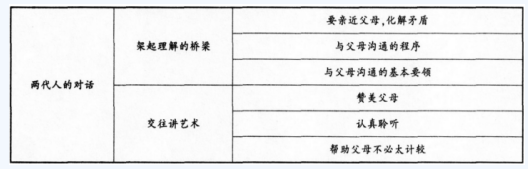 两代人的对话
架起理解的桥梁
要亲近父母,化解矛盾
与父母沟通的程序
与父母沟通的基本要领
交往讲艺术
赞美父母
认真聆听
帮助父母不必太计较